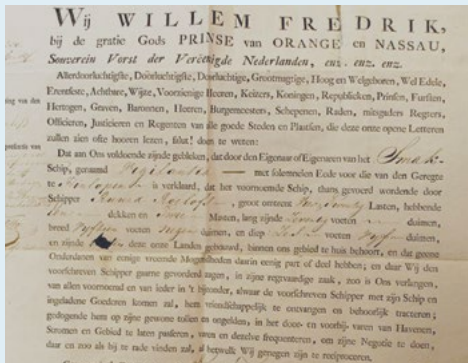 WIJ WILLEM FREDRIK,
bij de gratie Gods PRINSE van ORANGE en NASSAU,
Souverein Vorst der Vereenigde Nederlanden, enz. enz. enz.
Allerdoorluchtigste, Doorluchtigste, Doorluchtige, Grootmagtige, Hoog en Welgeboren, Wel Edele,
Erentfeste, Achtbare, Wijze, Voorzienige Heeren, Keizers, Koningen, Republieken, Prinsen, Fursten,
Hertogen, Graven, Baronnen, Heeren, Burgemeesters, Schepenen, Raden, mitsgaders Regters,
Officieren, Justicieren en Regenten van alle goede Steden en Plaatsen, die deze onze openen Letteren
zullen zien ofte hooren lezen, salut! doen te weten:
Dat aan Ons voldoende zijnde gebleken, dat door den Eigenaar of Eigenaren van het Smak-
Schip, genaamd — met solemnelen Eede voor die van den Geregte
te is verklaard, dat het voornoemde Schip, thans gevoerd wordende door
Schipper Roelofs, groot omtrent Lasten, hebbende
dekken en Masten, lang zijnde voeten — duimen,
breed voeten duimen, en diep voeten duimen,
en einde deze onze Landen gebouwd, binnen ons gebied te huis behoort, en dat geene
Onderdanen van eenige vreemde Mogendheden daarin eenig part of deel hebben; en daar Wij den
voorschreven Schipper gaarne gevorderd zagen, in zijne regtvaardige zaak, zoo is Ons verlangen,
van allen voornoemd en van ieder in 't bijzonder, alwaar de voorschreven Schipper met zijn Schip en
ingeladene Goederen komen zal, hem vriendschappelijk te ontvangen en behoorlijk tracteren;
gedogende hem op zijne gewone tollen en ongelden, in het door- en voorbij- varen van Havenen,
Stroomen en Gebied te laten passeren, varen en dezelve frequenteren, om zijne Negotie te doen,
daar en zoo als hij te rade vinden zal, al hetwelk Wij genegen zijn te reciproceren.